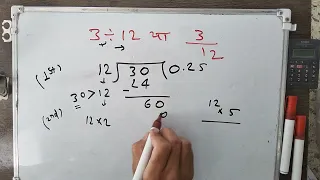 3 ÷ 12 या 3/12
(1st) 12 ) 30 ( 0.25
30 > 12 - 24
60
(2nd) 12 × 2 0
12
× 5